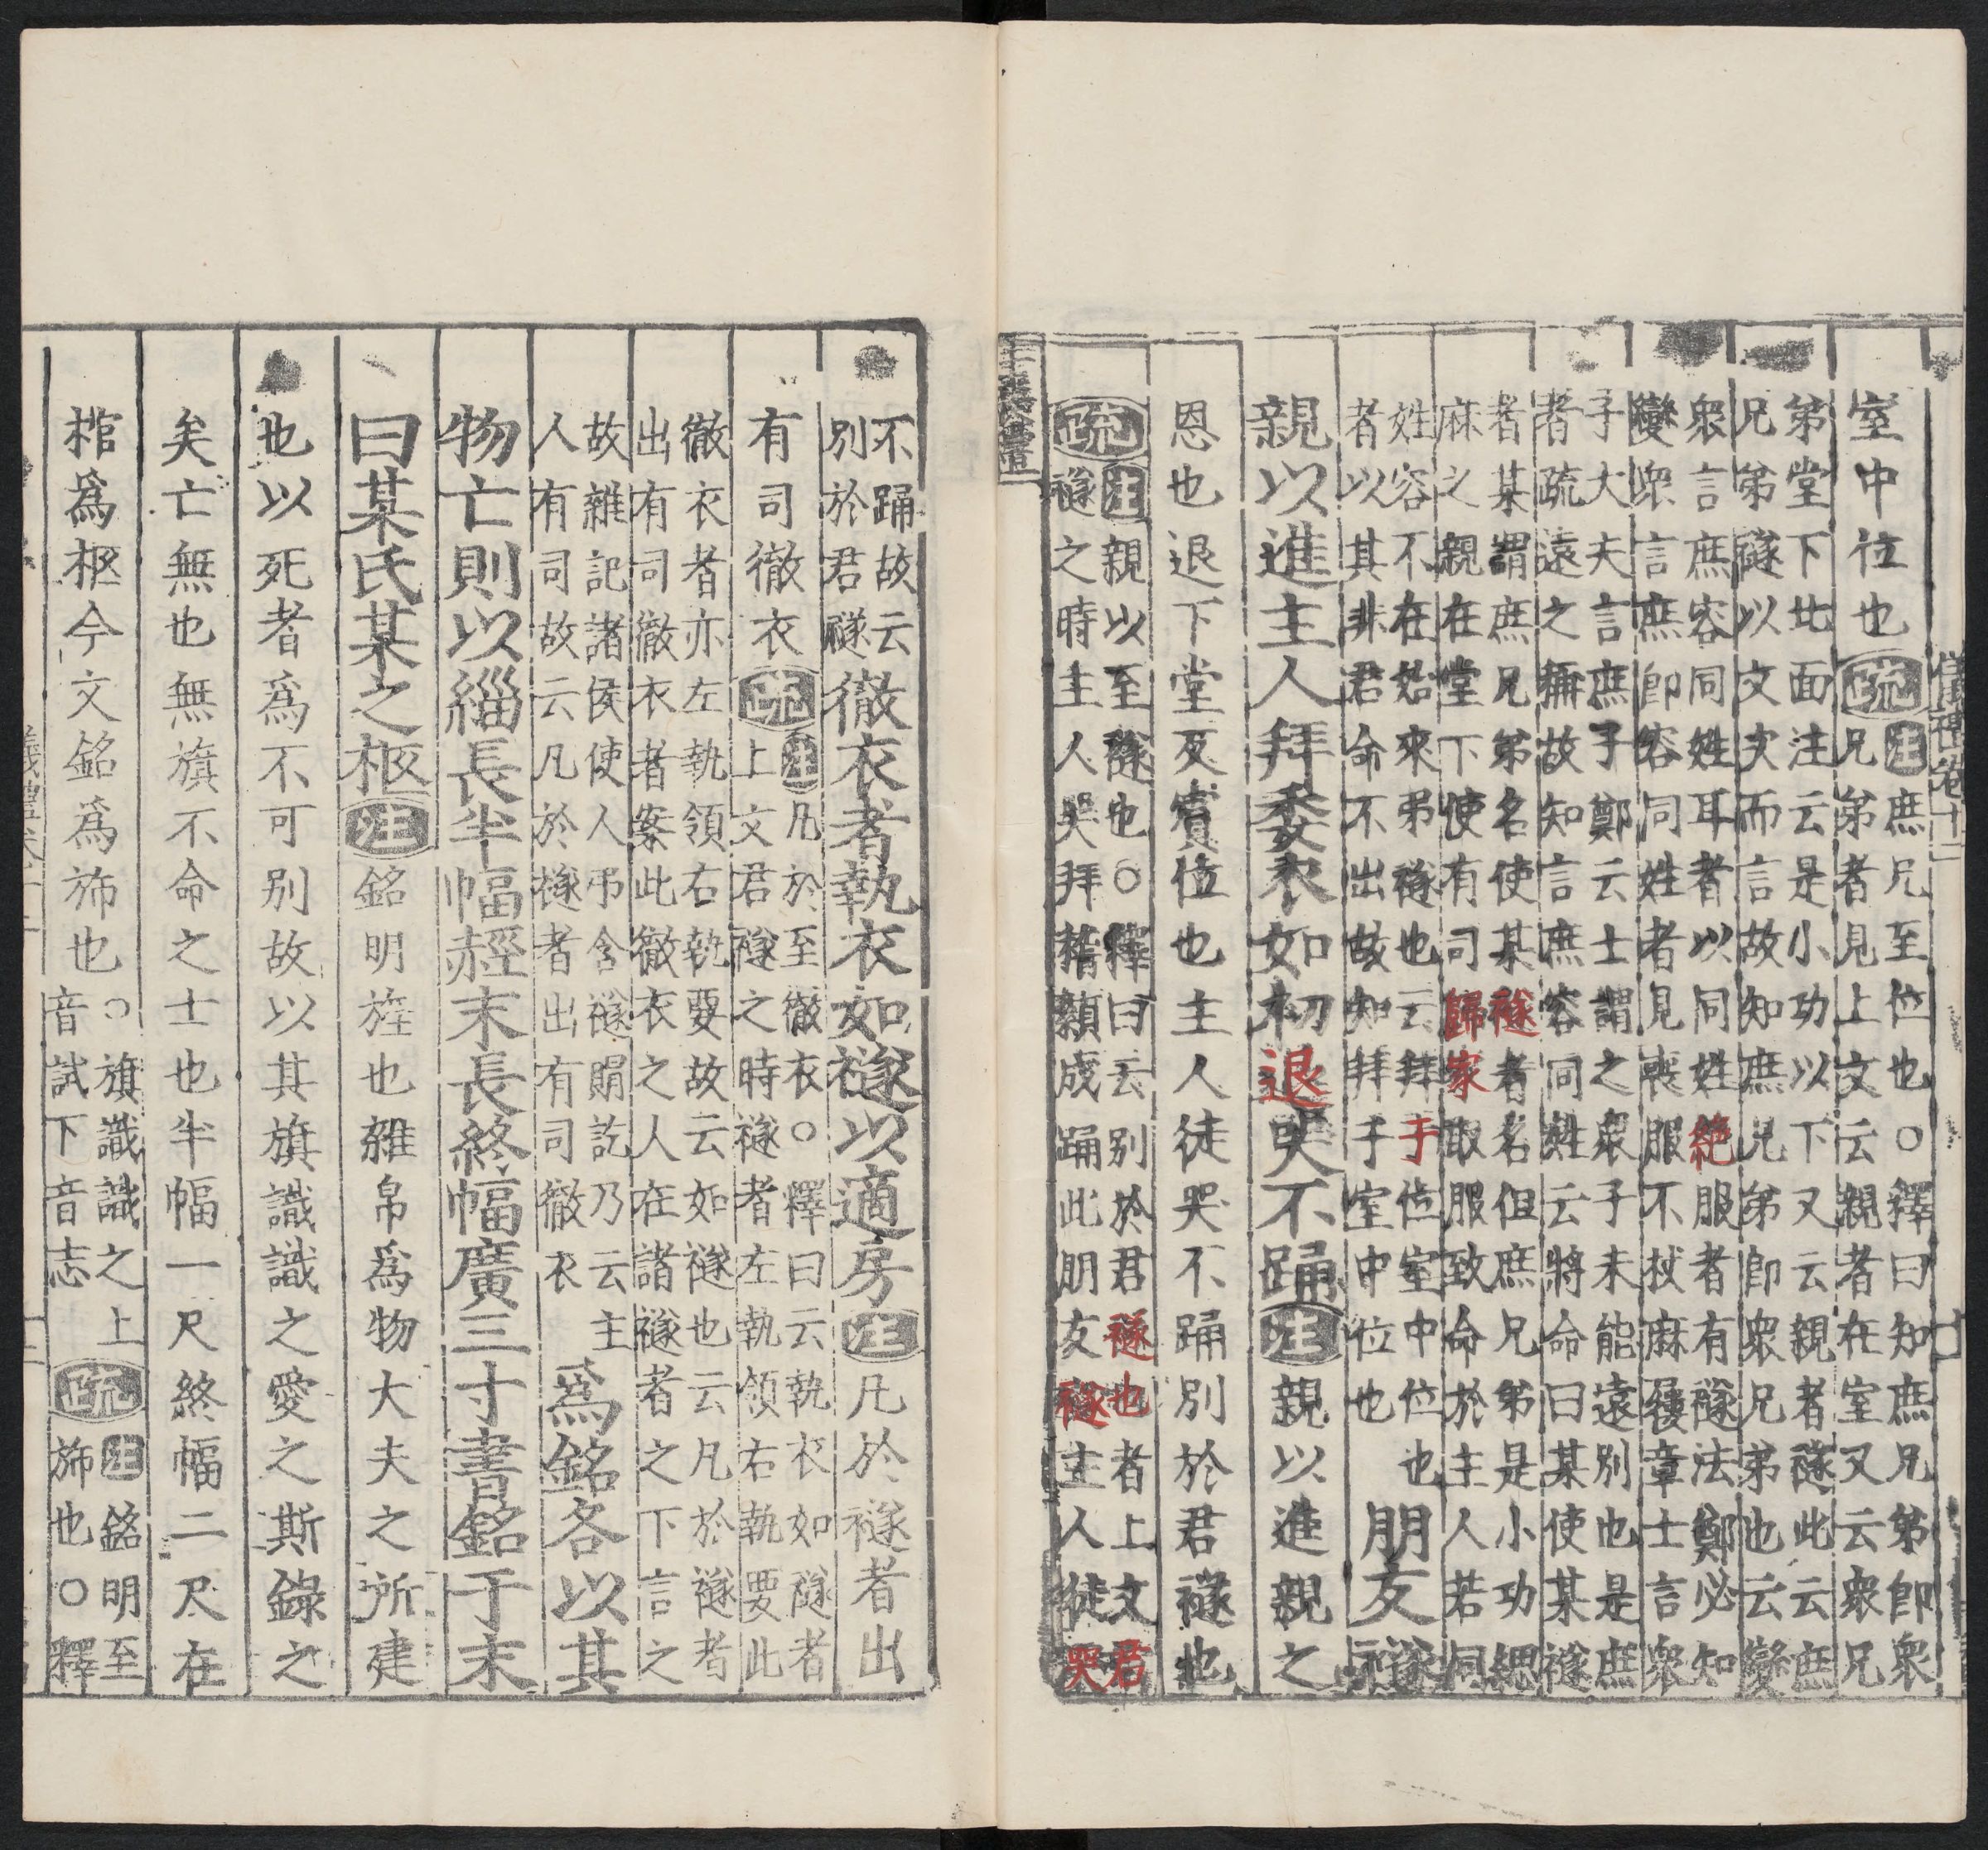 儀禮卷十二
室中位也疏注庶兄至位也○釋曰知庶兄弟即衆
兄弟者見上文云親者在室又云衆兄
弟堂下北面注云是小功以下又云親者襚此云庶
兄弟襚以文次而言故知庶兄弟即衆兄弟也云變
衆言庶容同姓耳者以同姓絶服者有襚法鄭必知
變衆言庶即容同姓者見喪服不杖麻屨章士言衆
子大夫言庶子鄭云士謂之衆子未能遠別也是庶
者疏遠之稱故知言庶容同姓云將命曰某使某襚
者某謂庶兄弟名使某襚者名但庶兄弟是小功緦
麻之親在堂下使有司歸家取服致命於主人若同
姓容不在始來弔襚也云拜于位室中位也
者以其非君命不出故知拜于室中位也
朋友襚
親以進主人拜委衣如初退哭不踊注親以進親之
恩也退下堂反賓位也主人徒哭不踊別於君襚也
疏注親以至襚也○釋曰云別於君襚也者上文君
襚之時主人哭拜稽顙成踊此朋友襚主人徒哭
不踊故云
別於君襚
徹衣者執衣如襚以適房注凡於襚者出
有司徹衣疏注凡於至徹衣○釋曰云執衣如襚者
上文君襚之時襚者左執領右執要此
徹衣者亦左執領右執要故云如襚也云凡於襚者
出有司徹衣者案此徹衣之人在諸襚者之下言之
故雜記諸侯使人弔含襚賵訖乃云主
人有司故云凡於襚者出有司徹衣
爲銘各以其
物亡則以緇長半幅赬末長終幅廣三寸書銘于末
曰某氏某之柩注銘明旌也雜帛爲物大夫之所建
也以死者爲不可別故以其旗識識之愛之斯錄之
矣亡無也無旗不命之士也半幅一尺終幅二尺在
棺爲柩今文銘爲斾也○旗識識之上
音試下音志
疏注銘明至
斾也○釋
儀禮卷十二